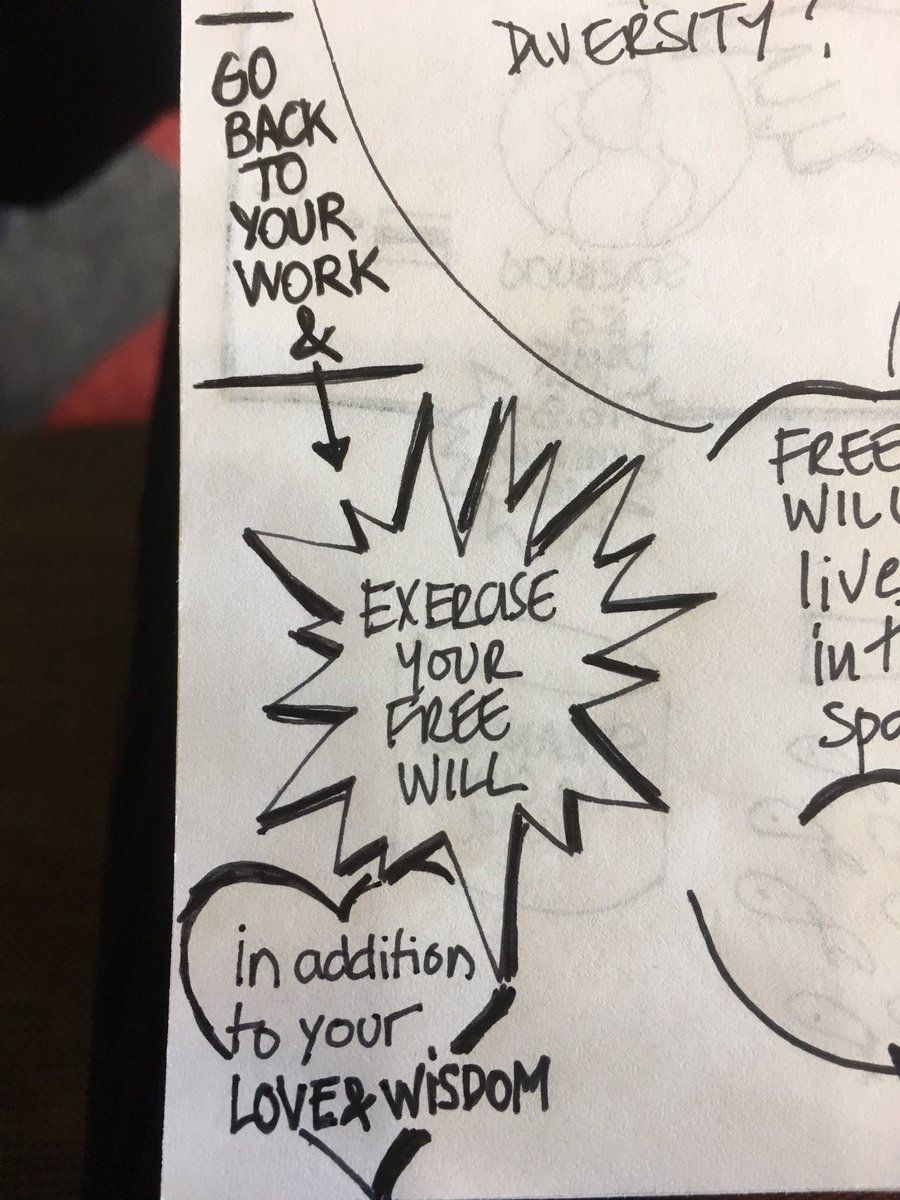 DIVERSITY!
GO
BACK
TO
YOUR
WORK
&
EXERCISE
YOUR
FREE
WILL
in addition
to your
LOVE & WISDOM
FREE
WILL